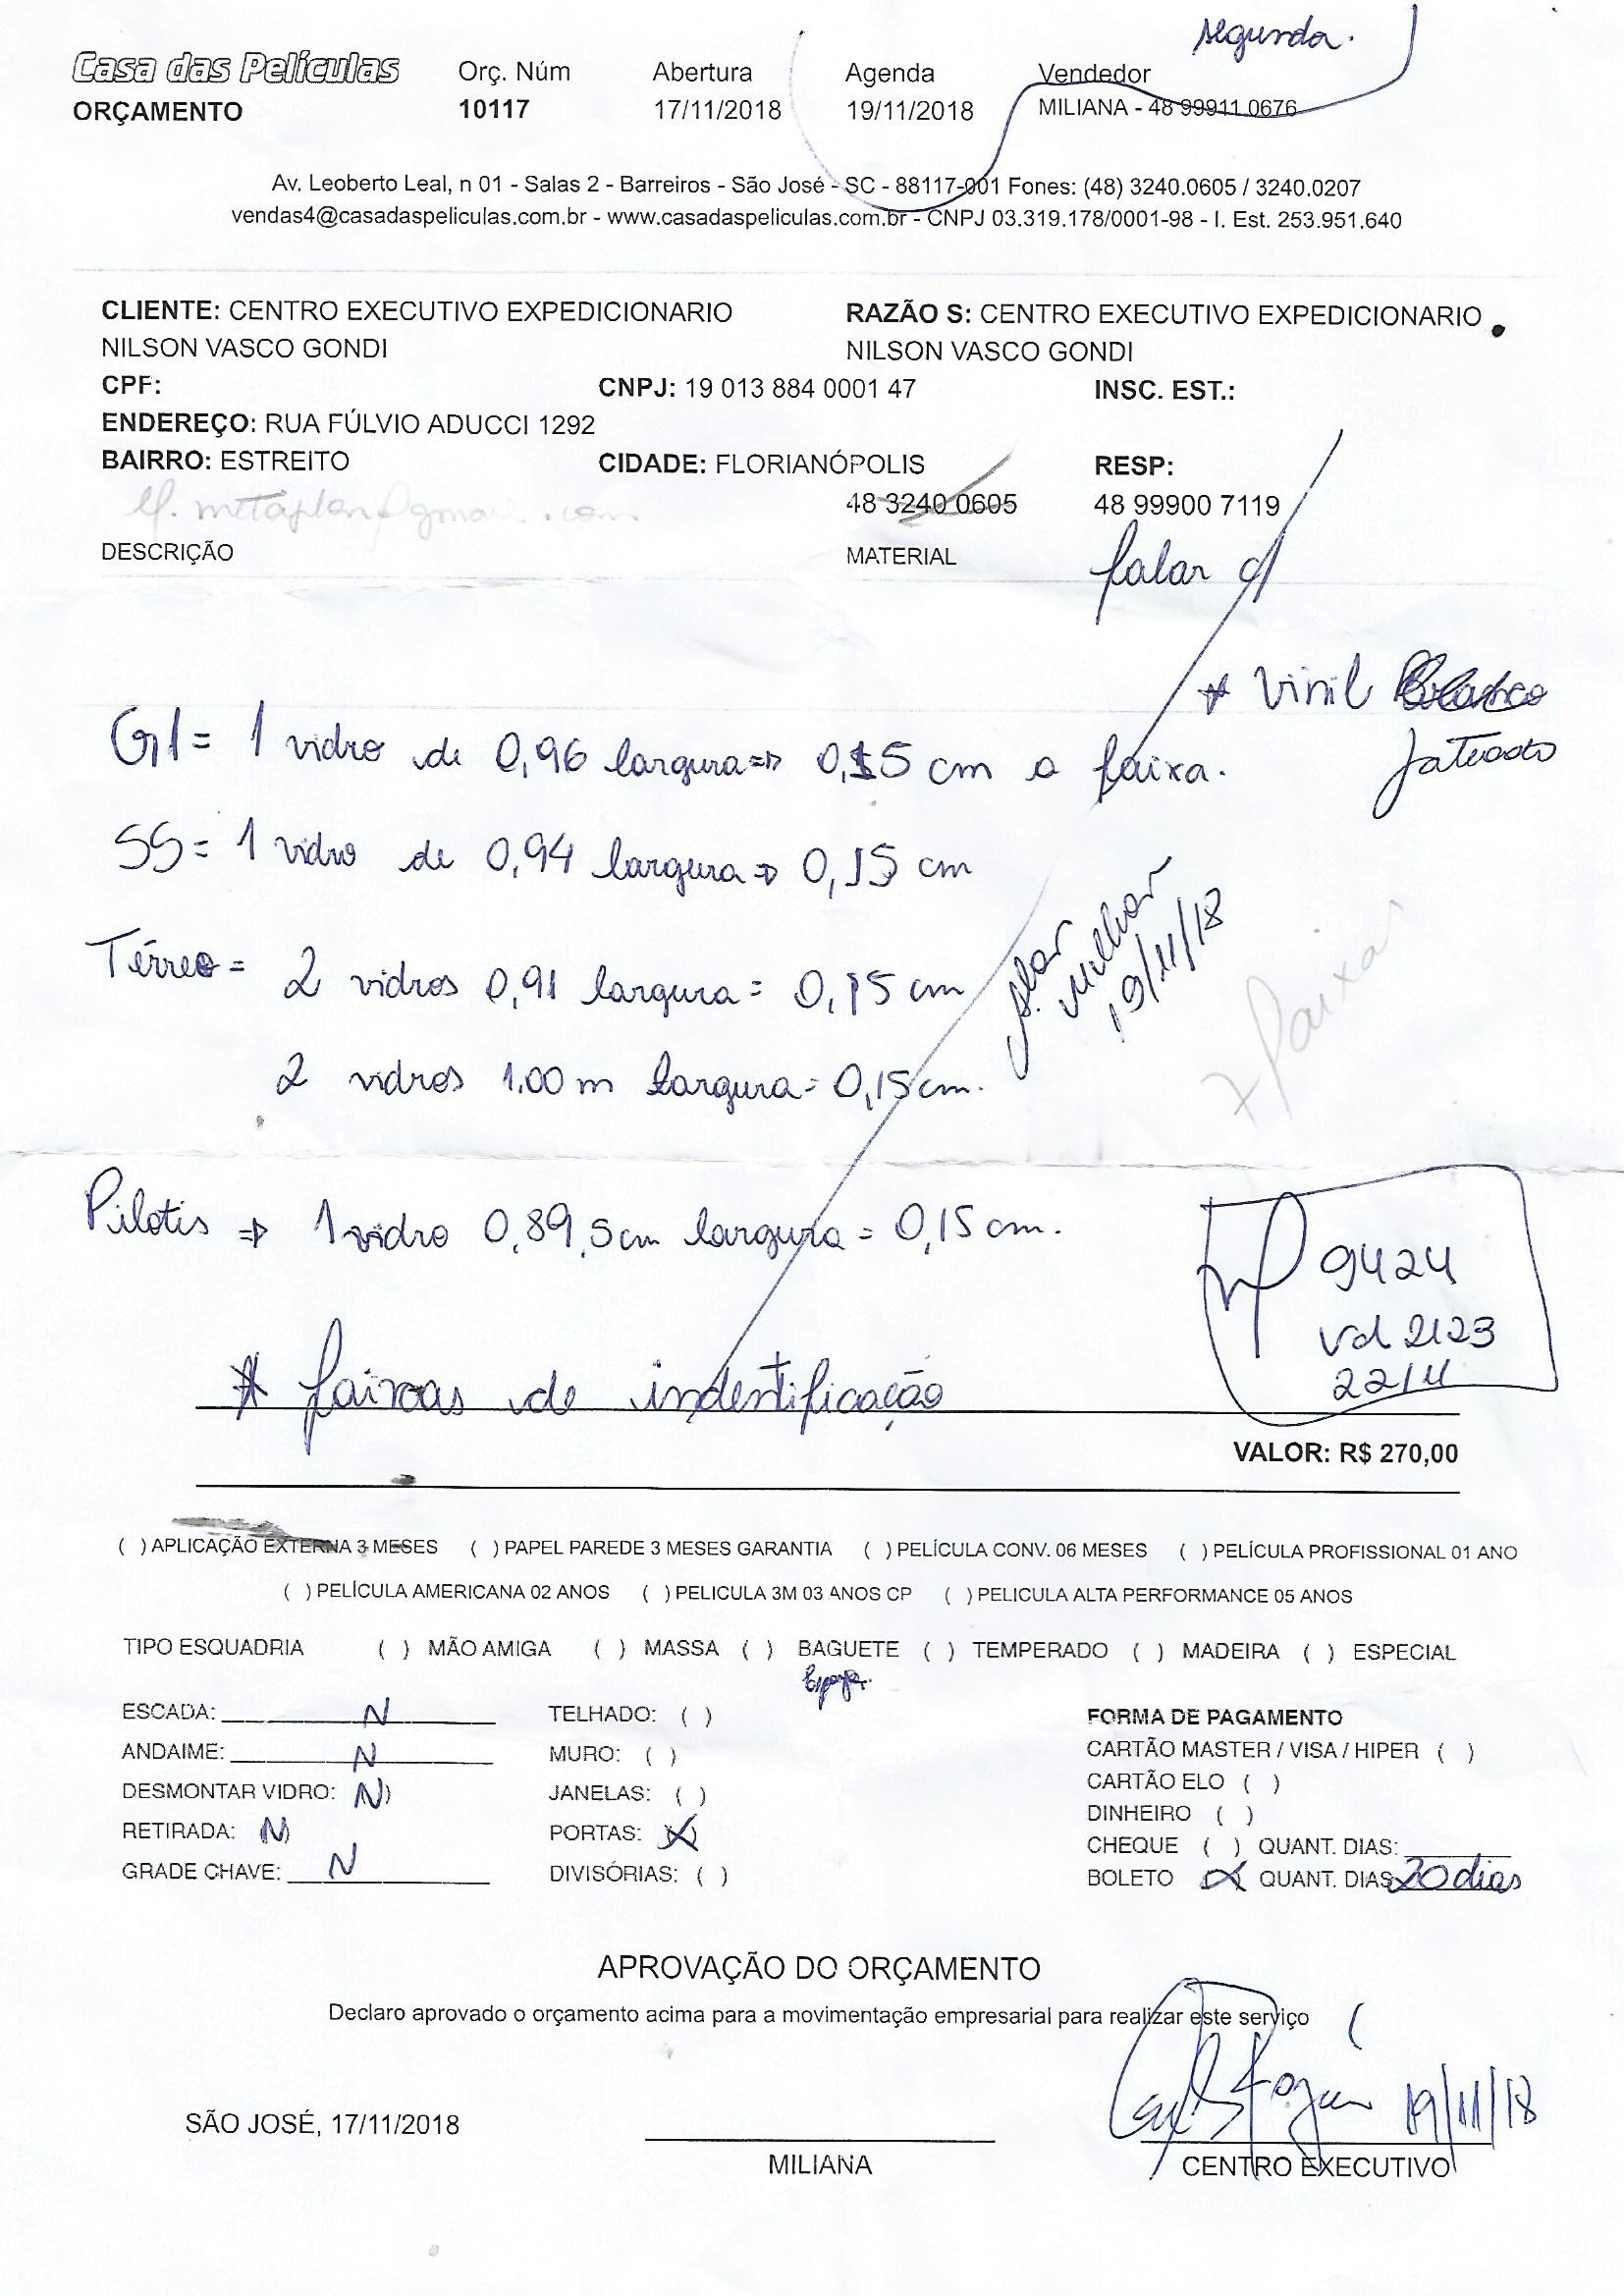 segunda.
Casa das Películas Orç. Núm Abertura Agenda Vendedor
ORÇAMENTO 10117 17/11/2018 19/11/2018 MILIANA - 48 99911.0676
Av. Leoberto Leal, n 01 - Salas 2 - Barreiros - São José - SC - 88117-001 Fones: (48) 3240.0605 / 3240.0207
vendas4@casadaspeliculas.com.br - www.casadaspeliculas.com.br - CNPJ 03.319.178/0001-98 - I. Est. 253.951.640
CLIENTE: CENTRO EXECUTIVO EXPEDICIONARIO RAZÃO S: CENTRO EXECUTIVO EXPEDICIONARIO
NILSON VASCO GONDI NILSON VASCO GONDI
CPF: CNPJ: 19 013 884 0001 47 INSC. EST.:
ENDEREÇO: RUA FÚLVIO ADUCCI 1292
BAIRRO: ESTREITO CIDADE: FLORIANÓPOLIS RESP:
48 3240 0605 48 99900 7119
DESCRIÇÃO MATERIAL falar c/
* Vinil Branco
Jateado
G1 = 1 vidro de 0,96 largura => 0,15 cm a faixa.
SS = 1 vidro de 0,94 largura => 0,15 cm
Térreo = 2 vidros 0,91 largura = 0,15 cm
2 vidros 1.00 m largura = 0,15 cm.
19/11/18
7 faixas
Pilotis => 1 vidro 0,89,5cm largura = 0,15 cm.
9424
vd 2123
22/11
* faixas de indentificação
VALOR: R$ 270,00
( ) APLICAÇÃO EXTERNA 3 MESES ( ) PAPEL PAREDE 3 MESES GARANTIA ( ) PELÍCULA CONV. 06 MESES ( ) PELÍCULA PROFISSIONAL 01 ANO
( ) PELÍCULA AMERICANA 02 ANOS ( ) PELICULA 3M 03 ANOS CP ( ) PELICULA ALTA PERFORMANCE 05 ANOS
TIPO ESQUADRIA ( ) MÃO AMIGA ( ) MASSA ( ) BAGUETE ( ) TEMPERADO ( ) MADEIRA ( ) ESPECIAL
ESCADA: N TELHADO: ( ) FORMA DE PAGAMENTO
ANDAIME: N MURO: ( ) CARTÃO MASTER / VISA / HIPER ( )
DESMONTAR VIDRO: (N) JANELAS: ( ) CARTÃO ELO ( )
DINHEIRO ( )
RETIRADA: (N) PORTAS: (X) CHEQUE ( ) QUANT. DIAS:
GRADE CHAVE: N DIVISÓRIAS: ( ) BOLETO (X) QUANT. DIAS 20 dias
APROVAÇÃO DO ORÇAMENTO
Declaro aprovado o orçamento acima para a movimentação empresarial para realizar este serviço
19/11/18
SÃO JOSÉ, 17/11/2018
MILIANA CENTRO EXECUTIVO